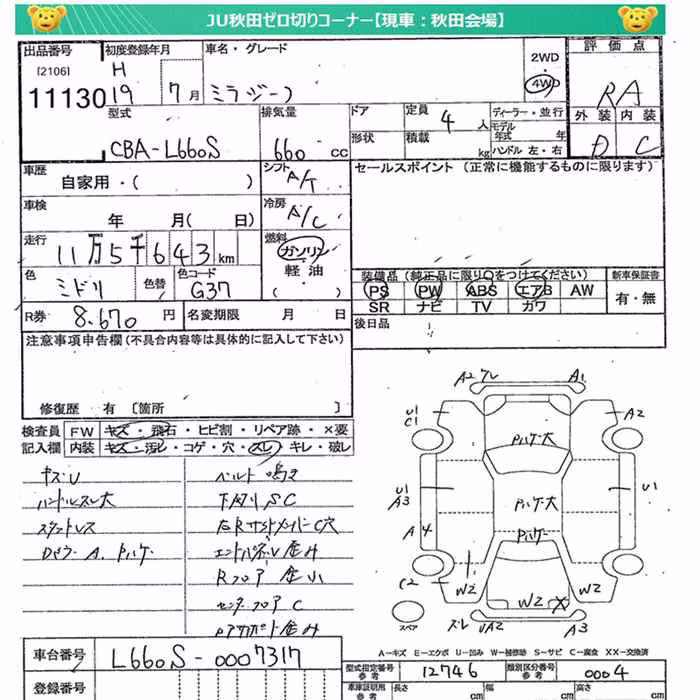 JU秋田ゼロ切りコーナー【現車：秋田会場】
出品番号 初度登録年月 車名・グレード 2WD 4WD 評価点
[2106] H
11130 19 7月 ミラジーノ RA
型式 排気量 ドア 定員 4人 ディーラー・並行 外装 内装
形状 積載 kg モデル年式 年 ハンドル 左・右
CBA-L660S 660 CC D C
車歴 シフト セールスポイント (正常に機能するものに限ります)
自家用・( ) A/T
車検 冷房
年 月( 日) A/C
走行 燃料
11万5千643km ガソリン
軽油
( )
色 色替 色コード
ミドリ G37
装備品(純正品に限り○をつけてください) 新車保証書
PS PW ABS エアB AW 有・無
SR ナビ TV カワ
R券 8.670円 名変期限 月 日 後日品
注意事項申告欄(不具合内容等は具体的に記入して下さい)
修復歴 有 [箇所 ]
検査員 FW キズ・飛石・ヒビ割・リペア跡・×要
記入欄 内装 キズ・汚レ・コゲ・穴・スレ・キレ・破レ
キズU ベルト鳴き
ハンドルスレ大 下廻りSC
スタットレス 右RサイドメンバーC穴
A.Pハゲ エンドパネルV歪み
Rフロア歪小
センターフロアC
歪み
A2 A1
U1 C1 A2
Pハゲ大
U1 A3 Pハゲ大 U1
A4 Pハゲ
C2 W2 W2
W2 X
スペア UA2 A3
A－キズ E－エクボ U－凹み W－補修跡 S－サビ C－腐食 XX－交換済
車台番号 L660S-0007317
型式指定番号 参考 12746 類別区分番号 参考 0004
登録番号 車庫証明用 参考 長さ 幅 高さ